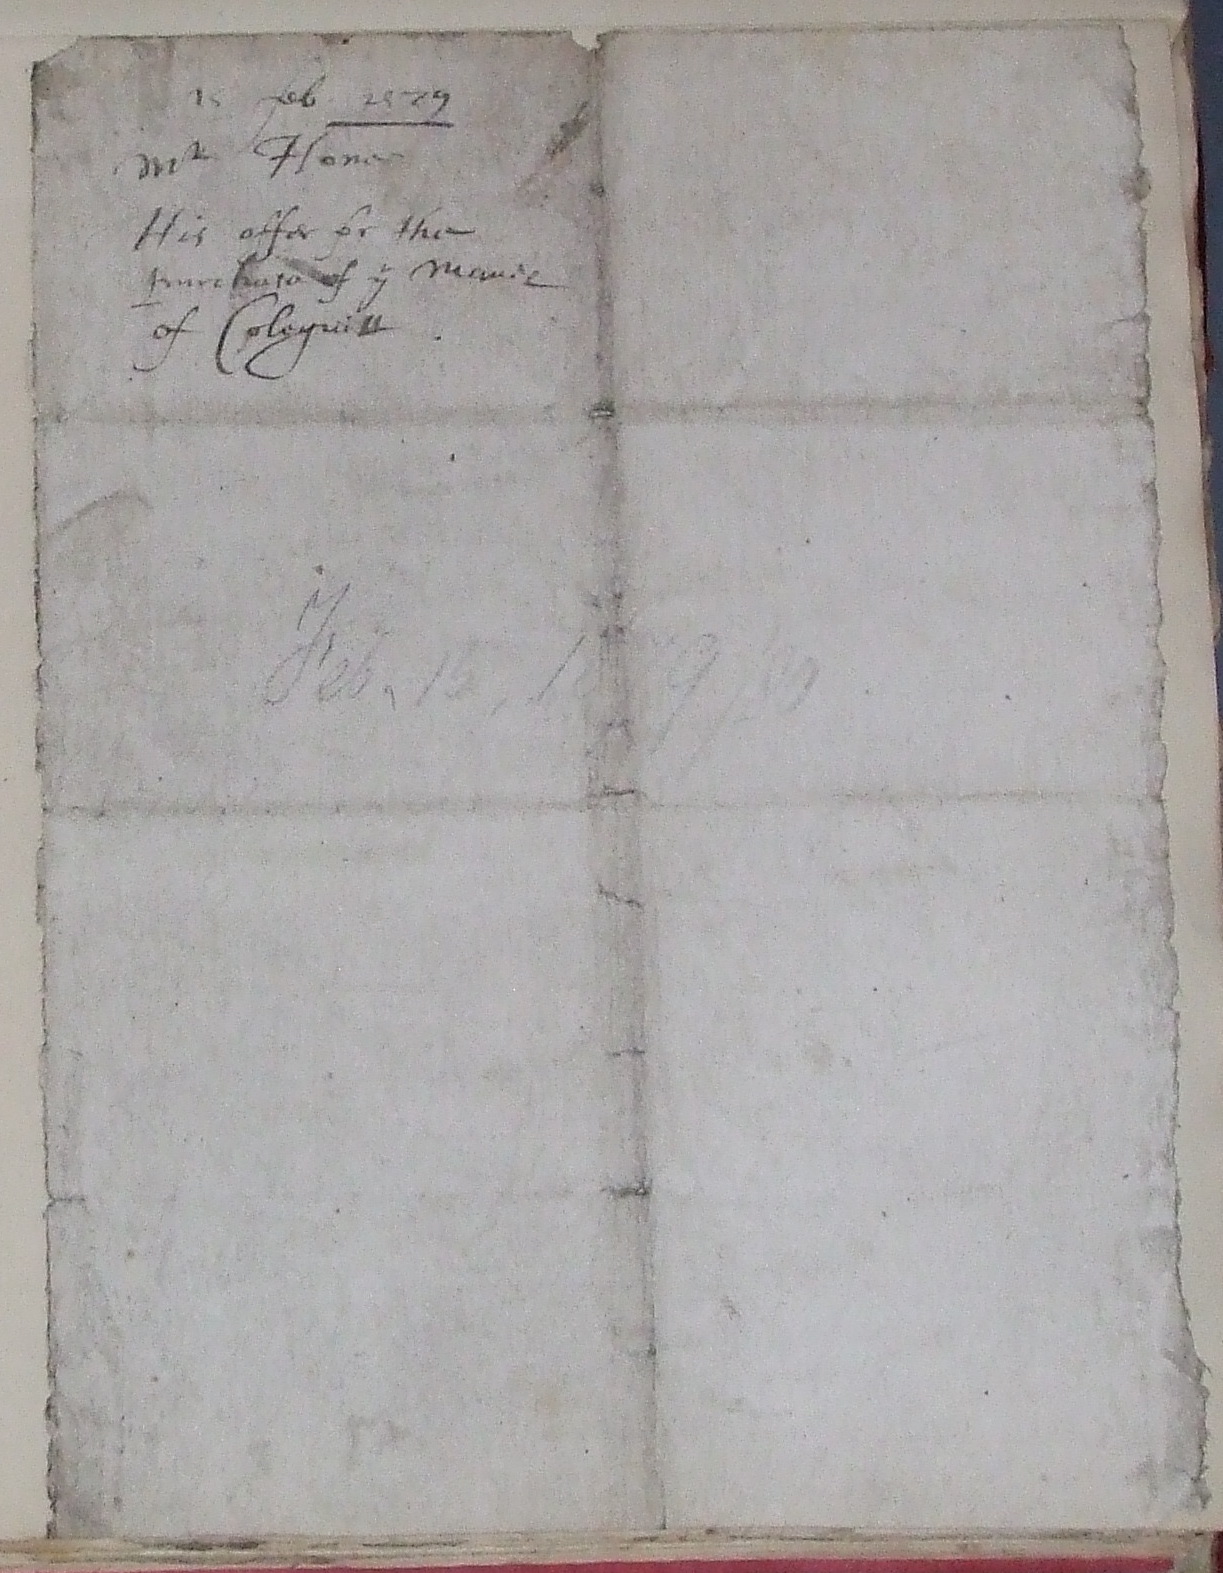 15 feb 1579
Mr Hone
His offer for the
purchase of ye Manor
of Coleguitt
Feb. 15, 1579/80